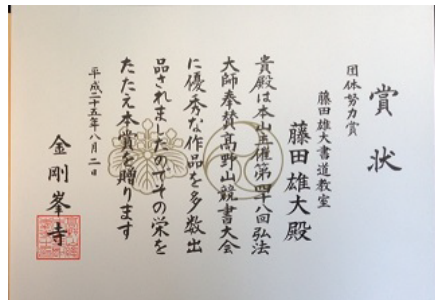 賞状
団体努力賞
藤田雄大書道教室
藤田雄大殿
貴殿は本山主催第四十八回弘法
大師奉賛高野山競書大会
に優秀な作品を多数出
品されましたのでその栄を
たたえ本賞を贈ります
平成二十五年八月二日
金剛峯寺